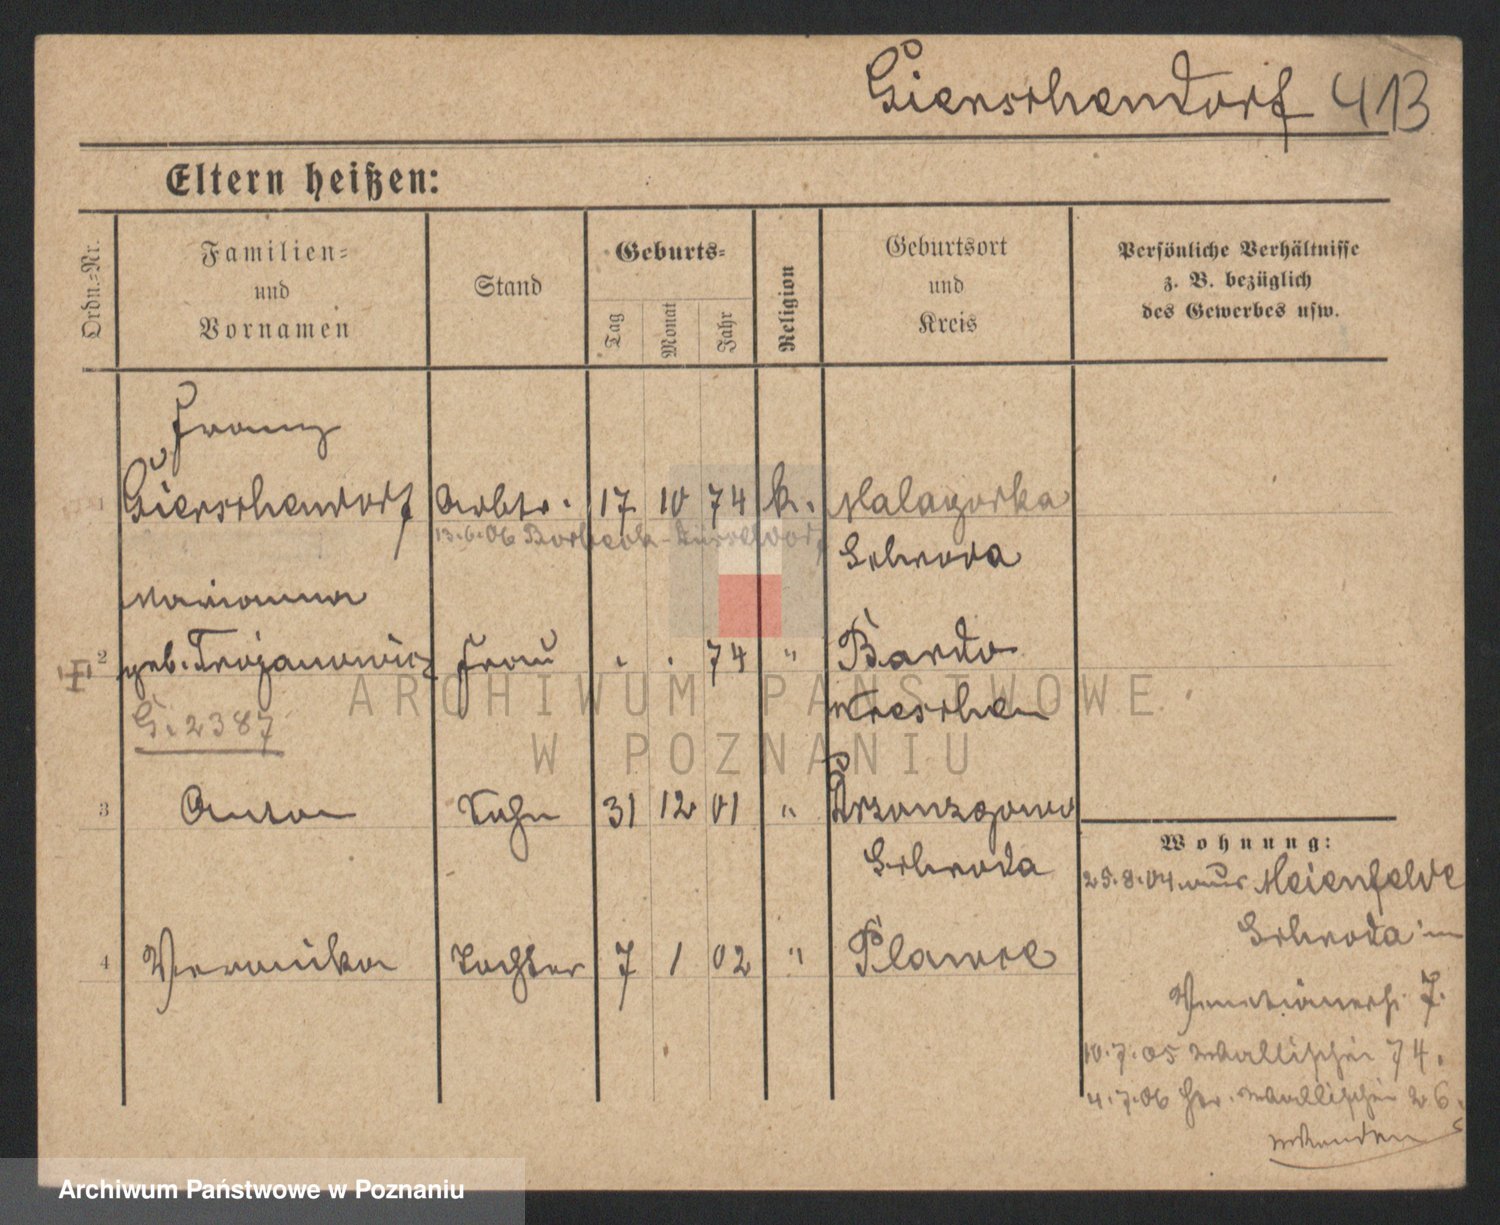 Gierschendorf 413
Eltern heißen:
Ordn.-Nr.
Familien-
und
Vornamen
Stand
Geburts-
Tag
Monat
Jahr
Religion
Geburtsort
und
Kreis
Persönliche Verhältnisse
z. B. bezüglich
des Gewerbes usw.
Franz
1 Gierschendorf Arbtr. 17 10 74 k. Malagorka
13.6.06 Borbeck - Düsseldorf
Schroda
Marianna
2 geb. Trojanowicz Frau . . 74 " Bardo
Wreschen
G. 2387
3 Anton Sohn 31 12 01 " Krzonzgowo
Schroda
4 Veronika Tochter 7 1 02 " Plawce
Wohnung:
25.8.04 aus Meienfelde
Schroda in
7.
10.7.05 Wallischei 74.
4.7.06 Wallischei 26.
ARCHIWUM PAŃSTWOWE
W POZNANIU
Archiwum Państwowe w Poznaniu